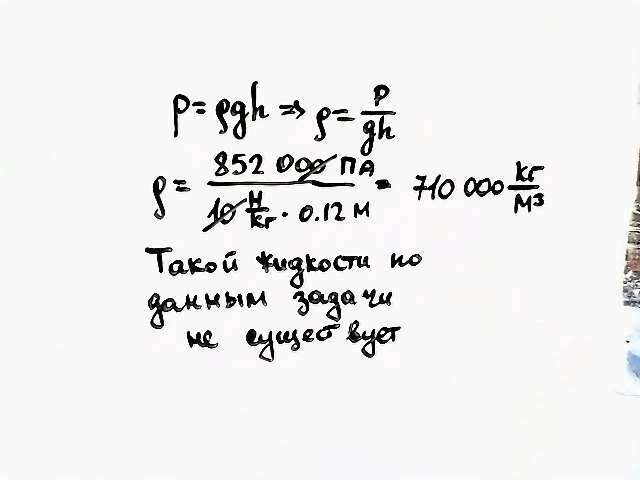 p = ρgh ⇒ ρ = p/gh
ρ = 852 000 ПА / 10 Н/кг · 0.12 М = 710 000 кг/М³
Такой жидкости по
данным задачи
не существует